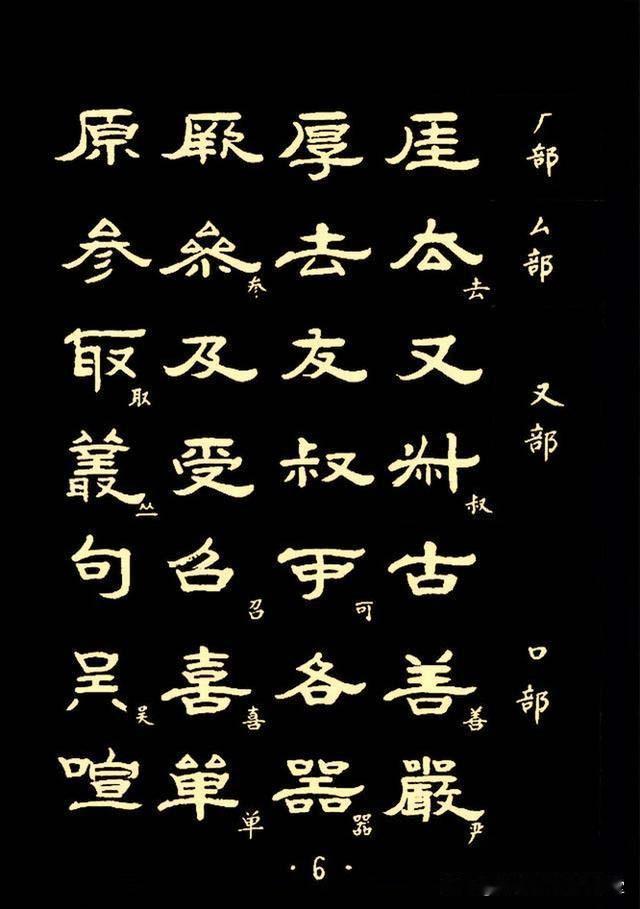 厂部 厓 厚 厥 原
厶部 厺去 去 参 参
又部 又 友 及 取取
叔 叔 受 叢丛
古 可可 召召 句
口部 善善 各 喜喜 吴吴
嚴严 器器 単单 喧
·6·